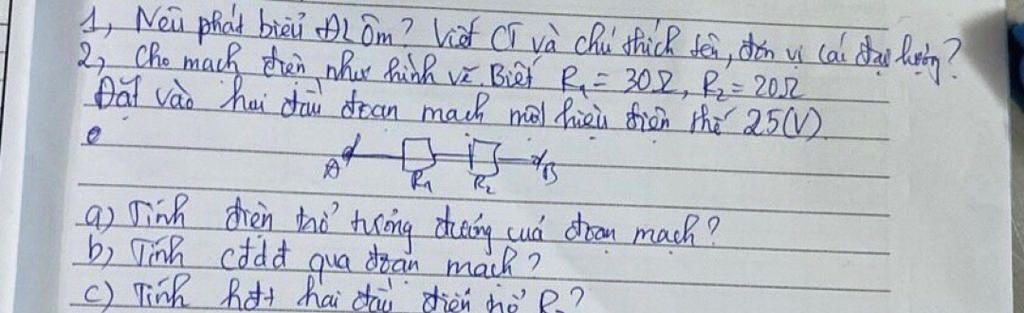 1, Nêu phát biểu ĐL Ôm? Viết CT và chú thích tên, đơn vị các đại lượng?
2, Cho mạch điện như hình vẽ. Biết R₁ = 30Ω, R₂ = 20Ω
Đặt vào hai đầu đoạn mạch một hiệu điện thế 25(V)
A R₁ R₂ B
a) Tính điện trở tương đương của đoạn mạch?
b) Tính cđdđ qua đoạn mạch?
c) Tính hđt hai đầu điện trở R₂?